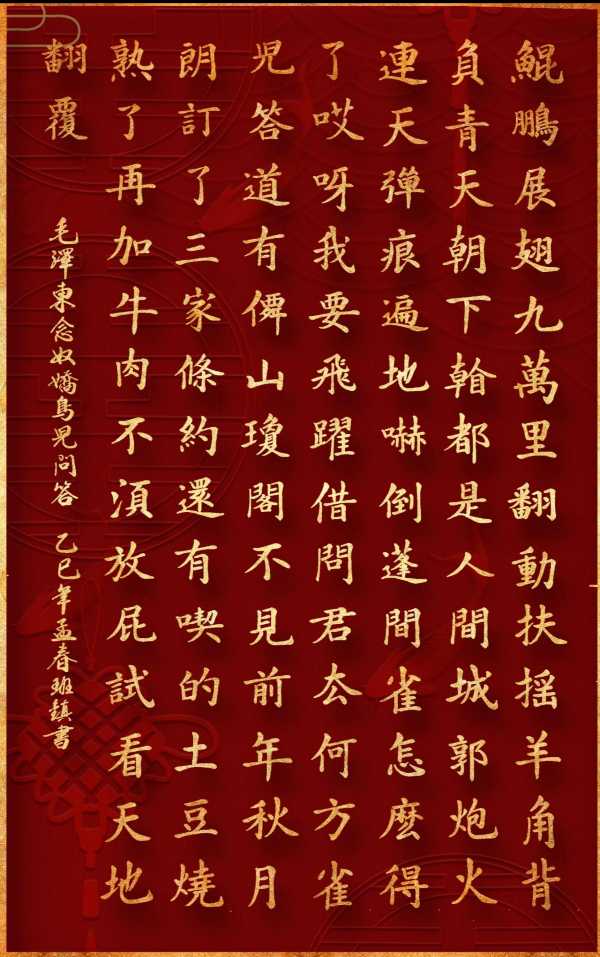 鯤鵬展翅九萬里翻動扶摇羊角背
負青天朝下榦都是人間城郭炮火
連天彈痕遍地嚇倒蓬間雀怎麽得
了哎呀我要飛躍借問君去何方雀
児答道有僊山瓊閣不見前年秋月
朗訂了三家條約還有喫的土豆燒
熟了再加牛肉不湏放屁試看天地
翻覆
毛澤東念奴嬌鳥児問答 乙巳年孟春班鎮書